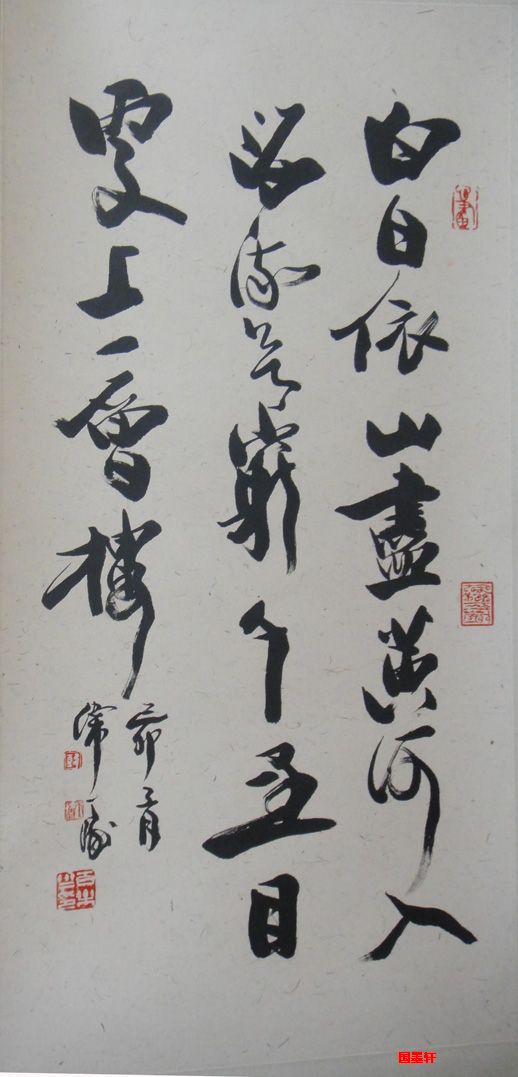 白日依山盡黃河入
海流欲窮千里目
更上一層樓
国墨轩